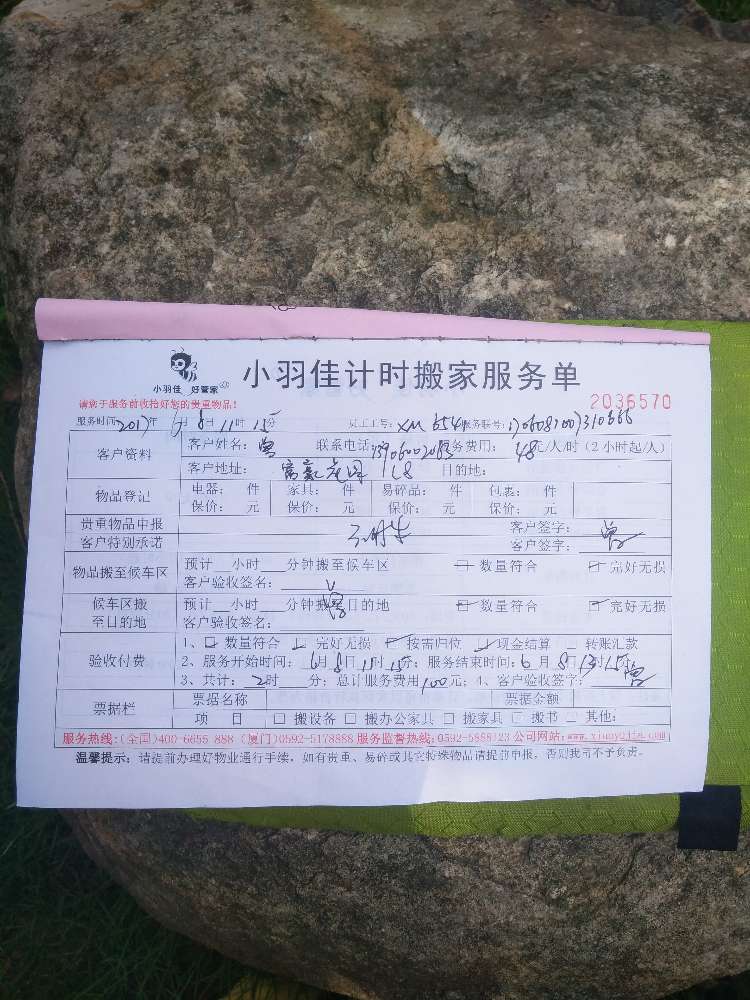 小羽佳 好管家
小羽佳计时搬家服务单
请您于服务前收拾好您的贵重物品!
2036570
服务时间2017年6月8日11时15分 员工工号:XM654 服务联号:
客户资料
客户姓名:曾 联系电话: 服务费用:48元/人/时(2小时起/人)
客户地址:富豪花园 目的地:
物品登记
电器: 件 家具: 件 易碎品: 件 包裹: 件
保价: 元 保价: 元 保价: 元 保价: 元
贵重物品申报 客户签字:曾
客户特别承诺 客户签字:
物品搬至候车区
预计__小时___分钟搬至候车区 数量符合 完好无损
客户验收签名:
候车区搬至目的地
预计__小时___分钟搬至目的地 数量符合 完好无损
客户验收签名:曾
验收付费
1、数量符合 完好无损 按需归位 现金结算 转账汇款
2、服务开始时间:6月8日11时15分;服务结束时间:6月8日13时15分
3、共计:2时___分;总计服务费用100元;4、客户验收签字:曾
票据栏
票据名称 票据金额
项 目 搬设备 搬办公家具 搬家具 搬书 其他:
服务热线:(全国)400-6655-888 (厦门)0592-5178888 服务监督热线:0592-5888123 公司网站:www.xiaoyujia.com
温馨提示:请提前办理好物业通行手续,如有贵重、易碎或其它特殊物品请提前申报,否则我司不予负责。